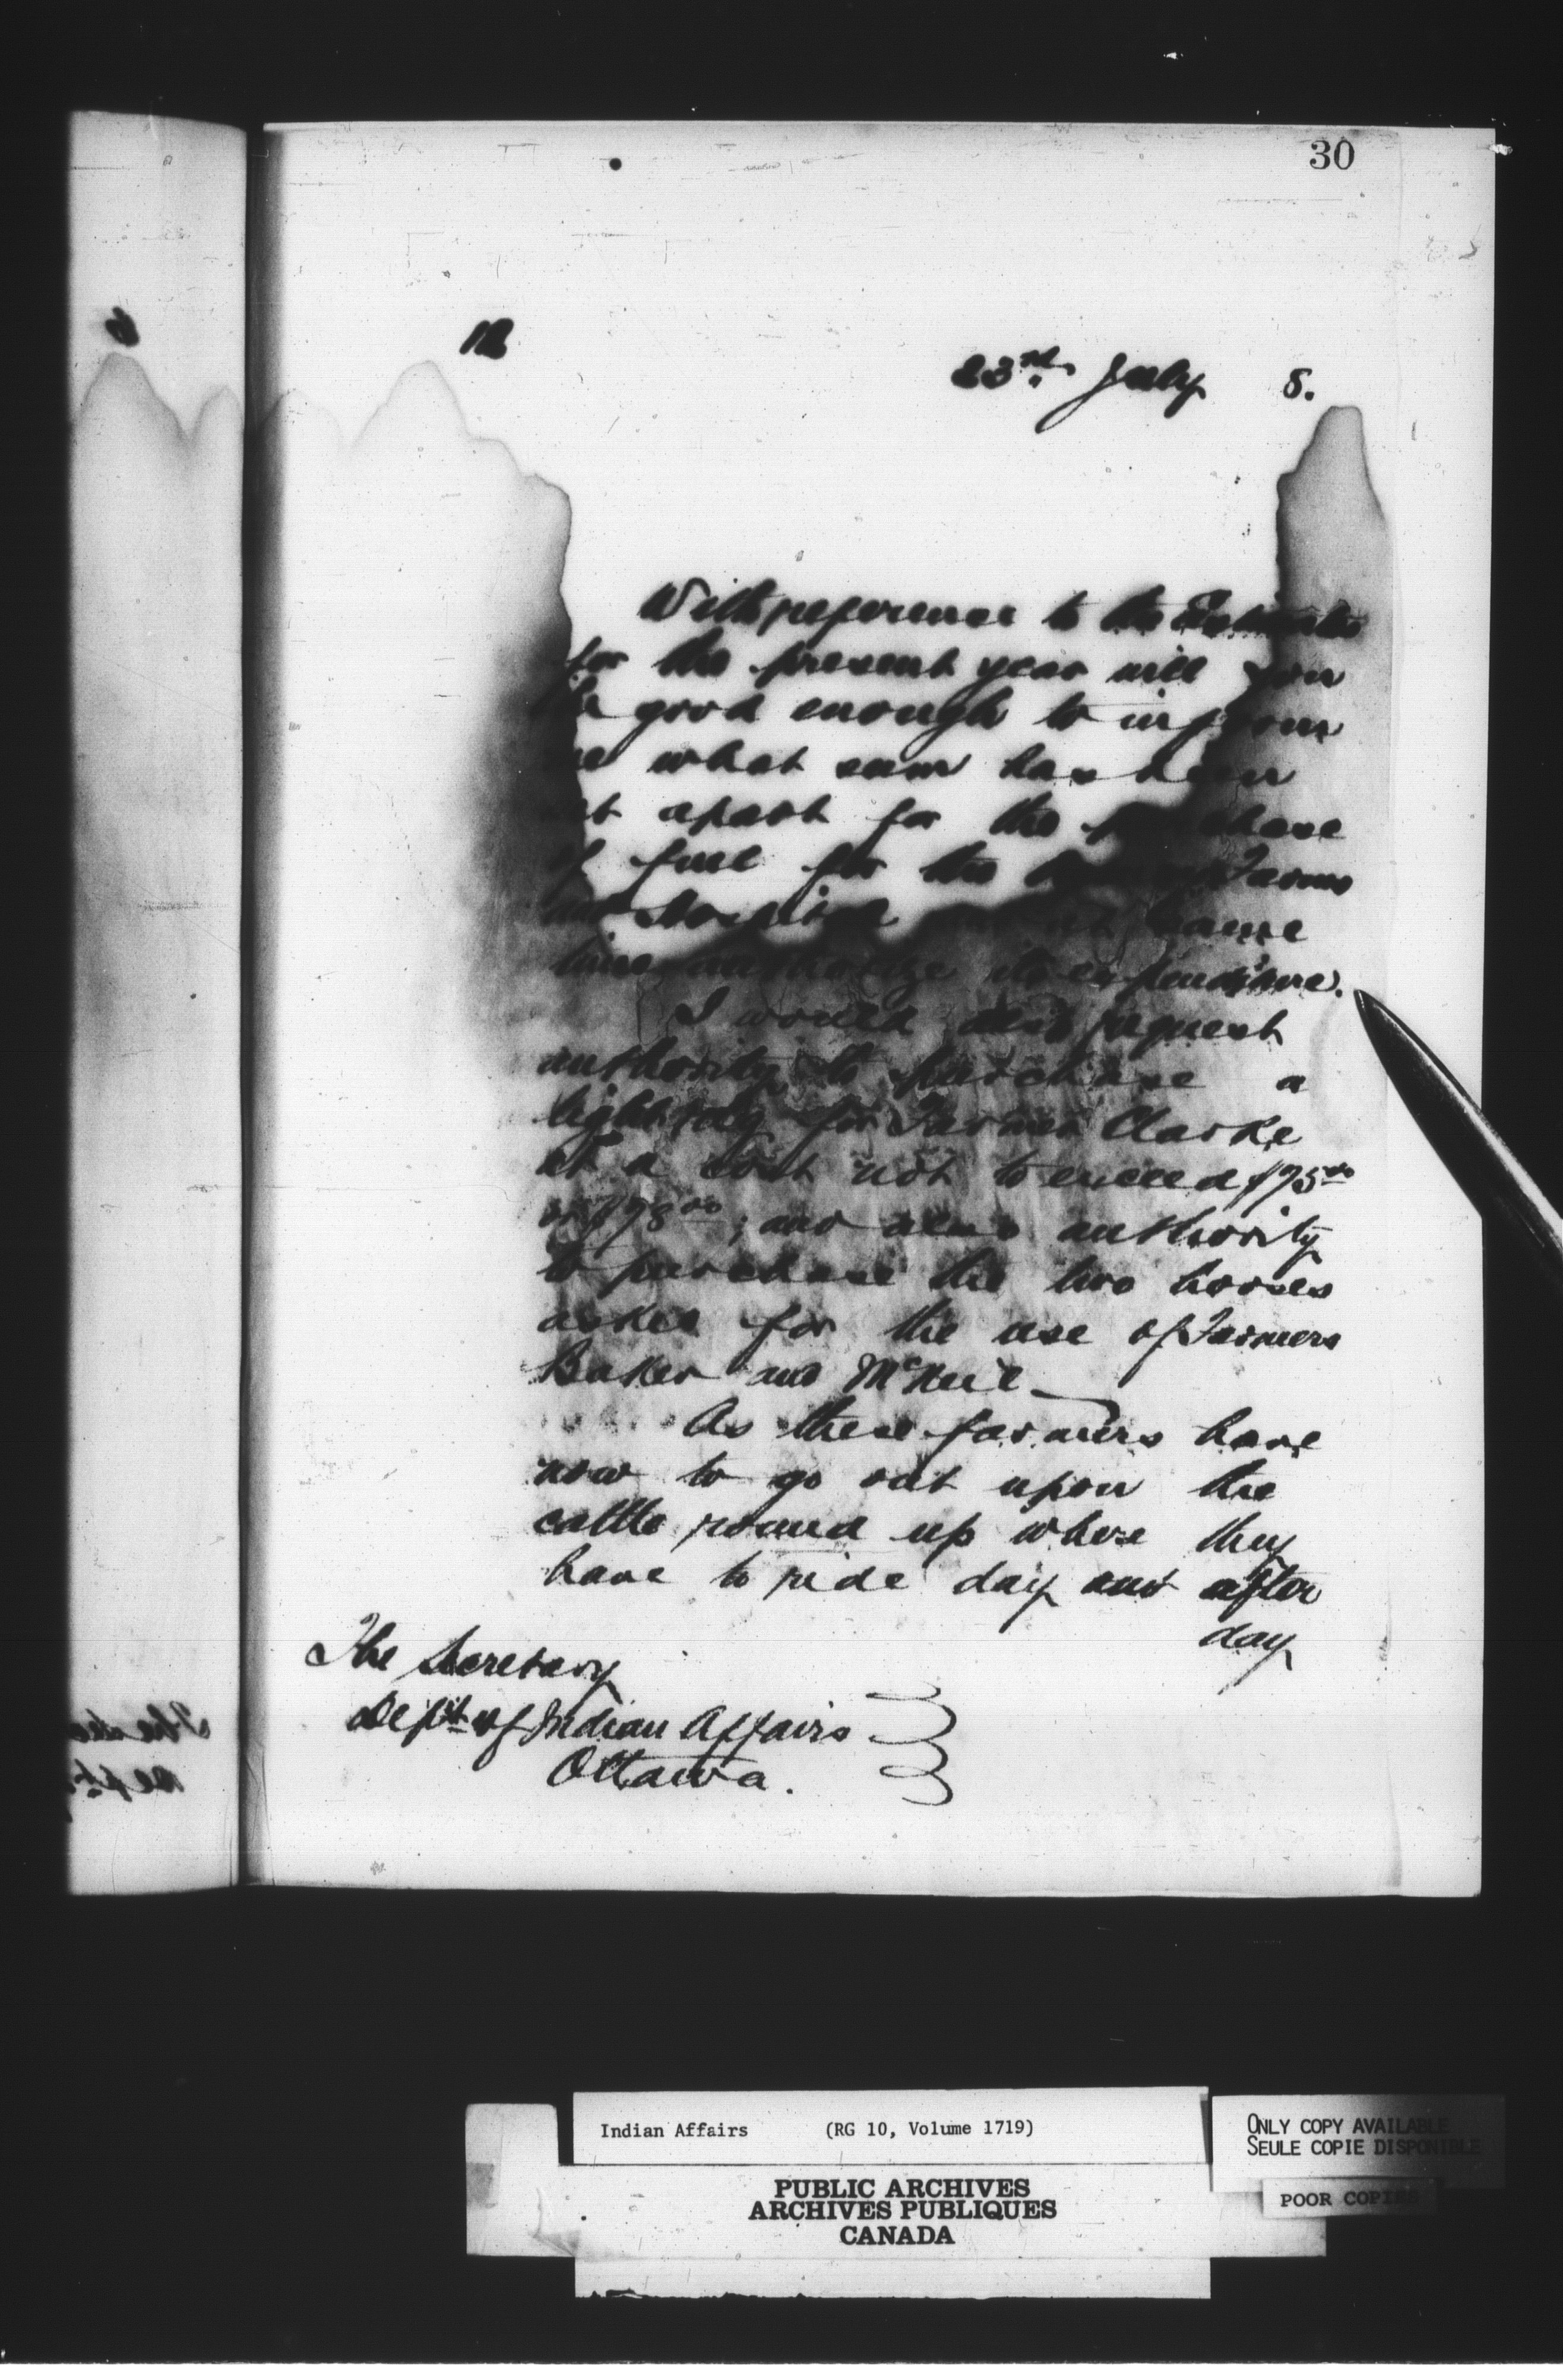 30
12
23rd. July 8.
With reference to the Estimates
for the present year will you
be good enough to inform
me what sum has been
set apart for the purchase
of fuel for the Farms
and Hospital same
time authorize its expenditure.
I would also request
authority to purchase a
light rig for Farmer Clarke
at a cost not to exceed $75.00
or $78.00; and also authority
to purchase the two horses
asked for the use of Farmers
Baker and McNeil
As these farmers have
now to go out upon the
cattle round up where they
have to ride day and after
day
The Secretary
Dept. of Indian Affairs
Ottawa.
Indian Affairs (RG 10, Volume 1719)
PUBLIC ARCHIVES
ARCHIVES PUBLIQUES
CANADA
ONLY COPY AVAILABLE
SEULE COPIE DISPONIBLE
POOR COPIES